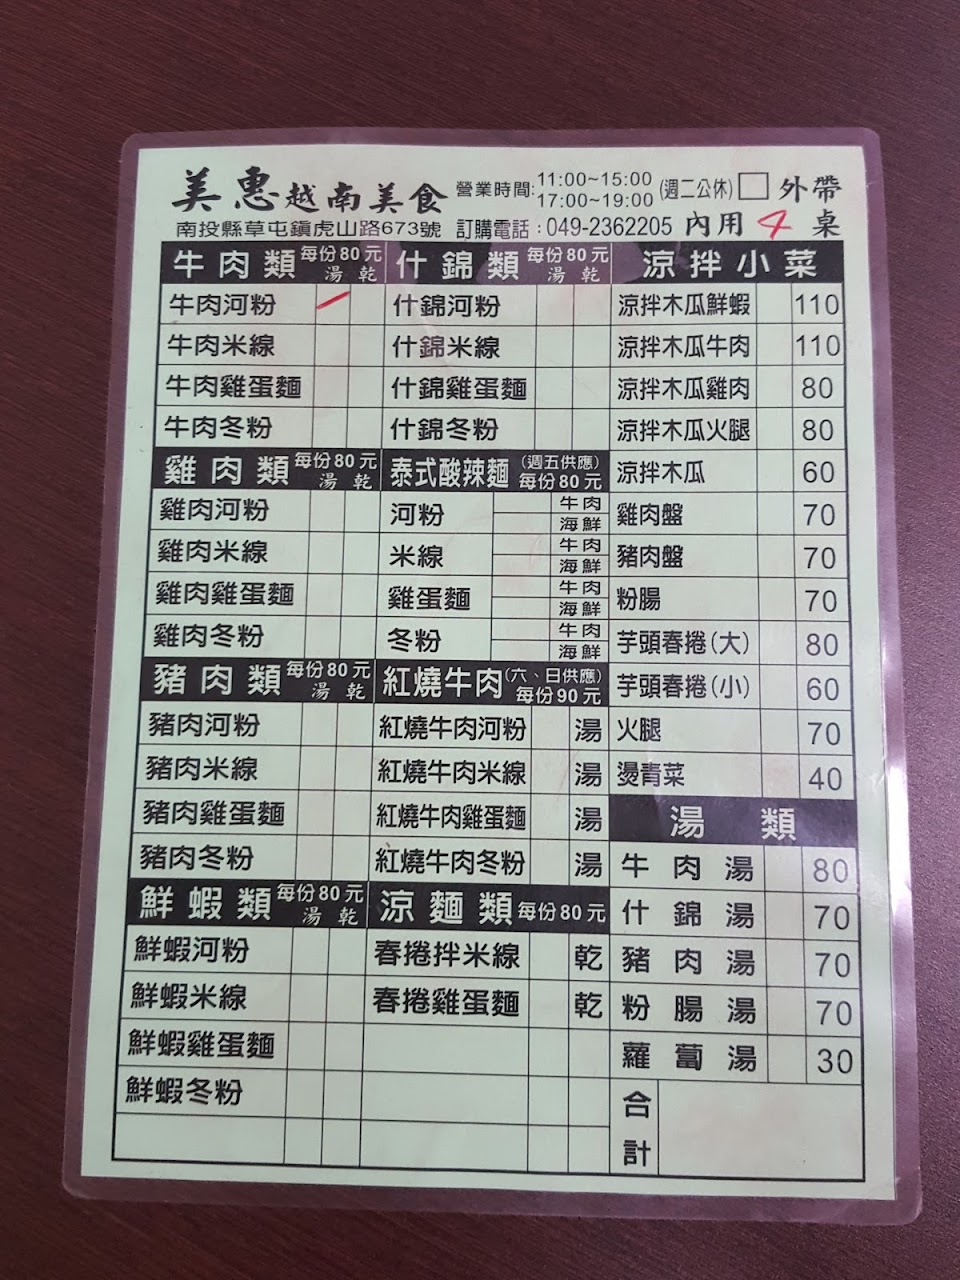 美惠越南美食
營業時間:11:00~15:00
17:00~19:00
(週二公休)
外帶
南投縣草屯鎮虎山路673號
訂購電話:049-2362205
內用 4 桌
牛肉類 每份80元
湯 乾
牛肉河粉
牛肉米線
牛肉雞蛋麵
牛肉冬粉
雞肉類 每份80元
湯 乾
雞肉河粉
雞肉米線
雞肉雞蛋麵
雞肉冬粉
豬肉類 每份80元
湯 乾
豬肉河粉
豬肉米線
豬肉雞蛋麵
豬肉冬粉
鮮蝦類 每份80元
湯 乾
鮮蝦河粉
鮮蝦米線
鮮蝦雞蛋麵
鮮蝦冬粉
什錦類 每份80元
湯 乾
什錦河粉
什錦米線
什錦雞蛋麵
什錦冬粉
泰式酸辣麵 (週五供應)
每份80元
河粉 牛肉
海鮮
米線 牛肉
海鮮
雞蛋麵 牛肉
海鮮
冬粉 牛肉
海鮮
紅燒牛肉 (六、日供應)
每份90元
紅燒牛肉河粉 湯
紅燒牛肉米線 湯
紅燒牛肉雞蛋麵 湯
紅燒牛肉冬粉 湯
涼麵類 每份80元
春捲拌米線 乾
春捲雞蛋麵 乾
涼拌小菜
涼拌木瓜鮮蝦 110
涼拌木瓜牛肉 110
涼拌木瓜雞肉 80
涼拌木瓜火腿 80
涼拌木瓜 60
雞肉盤 70
豬肉盤 70
粉腸 70
芋頭春捲(大) 80
芋頭春捲(小) 60
火腿 70
燙青菜 40
湯類
牛肉湯 80
什錦湯 70
豬肉湯 70
粉腸湯 70
蘿蔔湯 30
合計